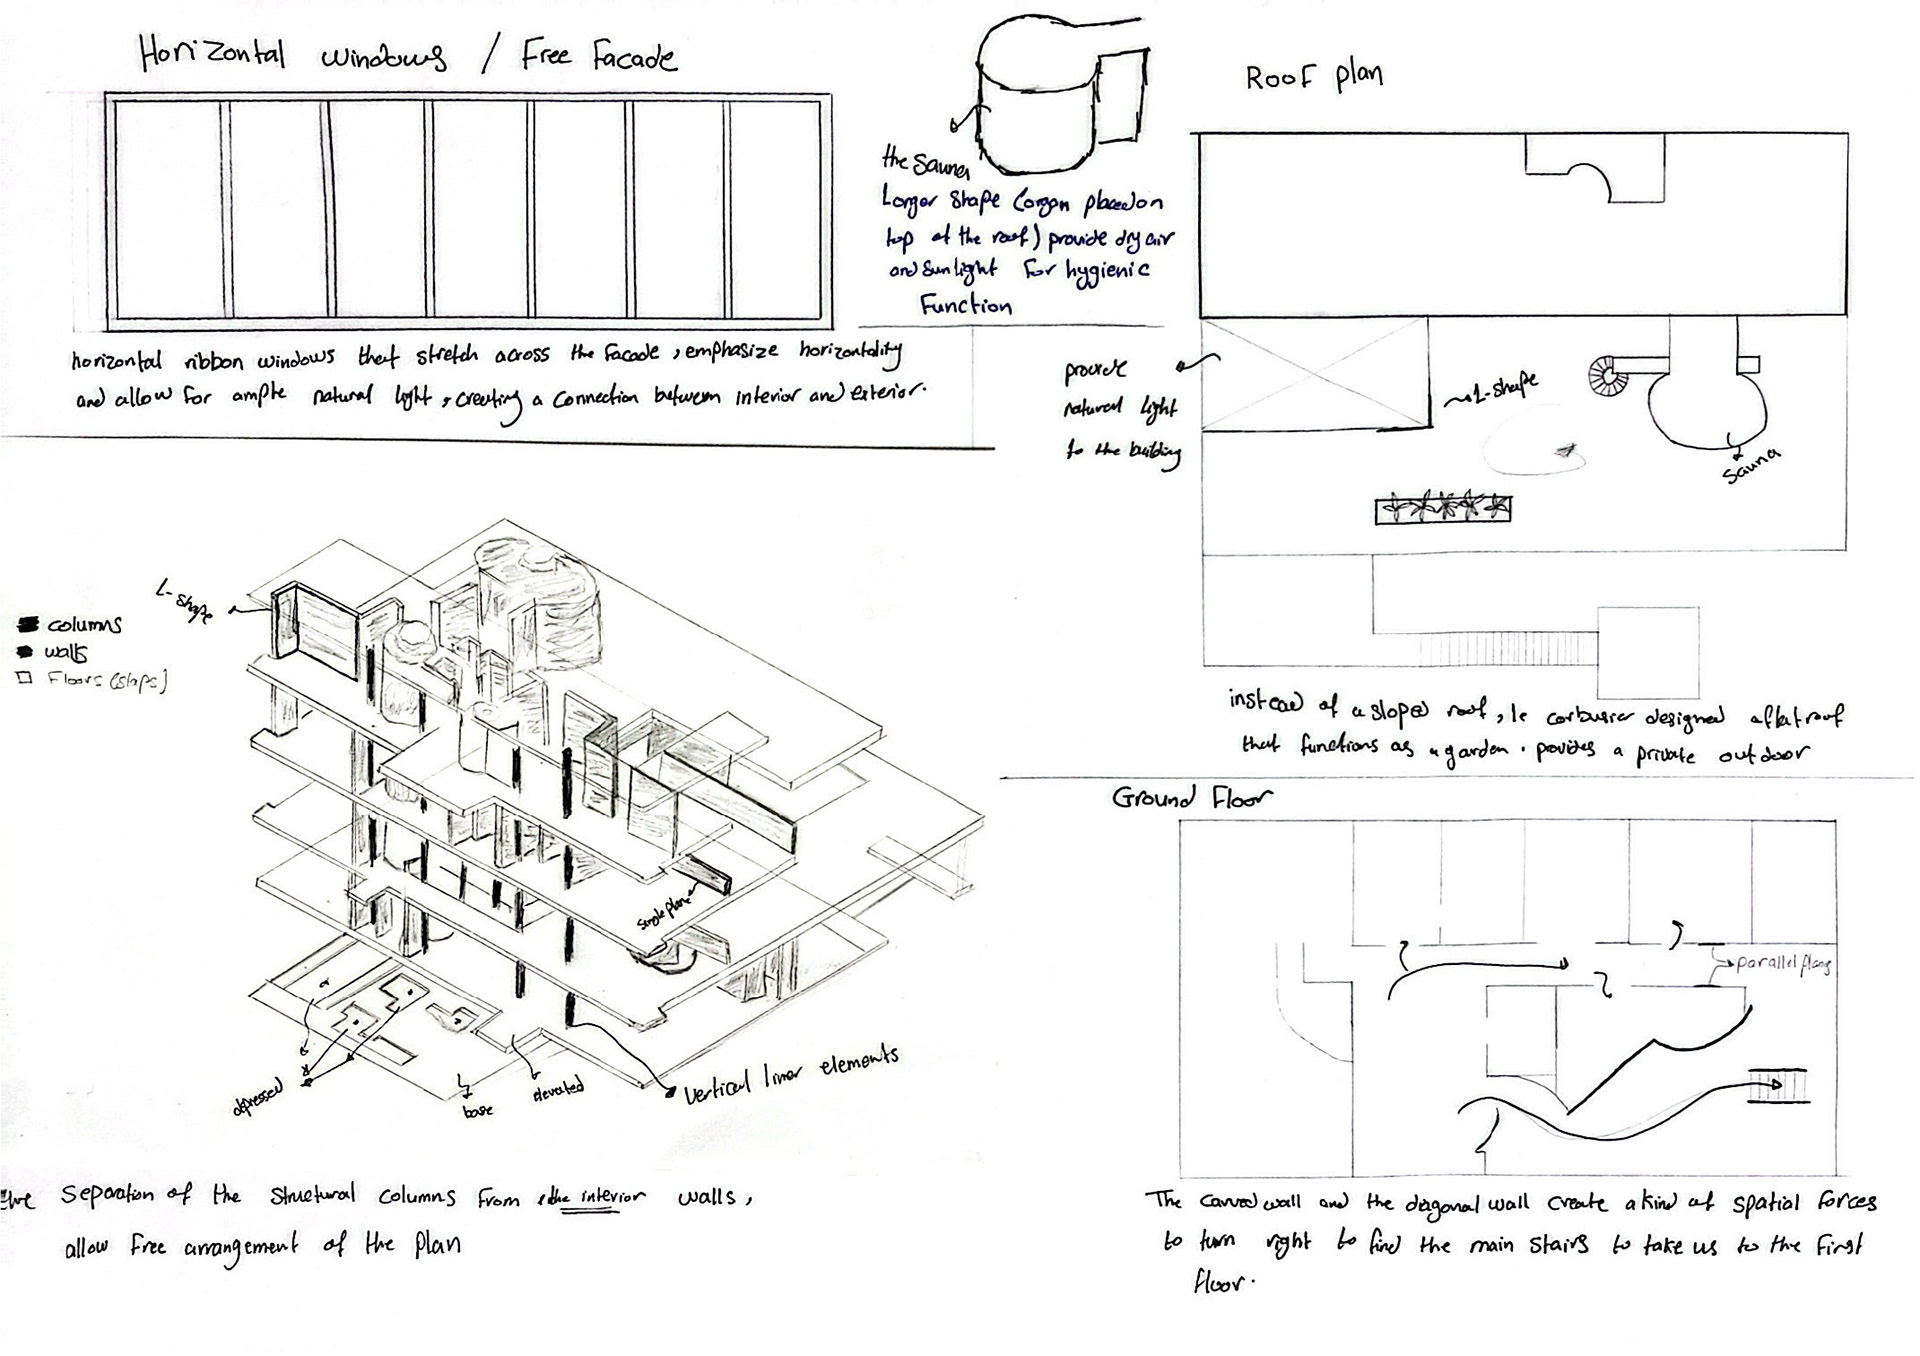 Horizontal windows / Free Facade
horizontal ribbon windows that stretch across the facade, emphasize horizontality
and allow for ample natural light, creating a connection between interior and exterior.
the Sauna
Larger shape (organ placed on
top of the roof) provide dry air
and sunlight For hygienic
Function
Roof plan
provide
natural light
to the building
L-shape
Sauna
instead of a sloped roof, le corbusier designed a flat roof
that functions as a garden. provides a private outdoor
L-shape
columns
walls
Floors (slaps)
single plane
depressed
base
elevated
Vertical liner elements
the Separation of the structural columns from the interior walls,
allow Free arrangement of the plan
Ground Floor
parallel plans
The carved wall and the diagonal wall create a kind of spatial forces
to turn right to find the main stairs to take us to the first
floor.